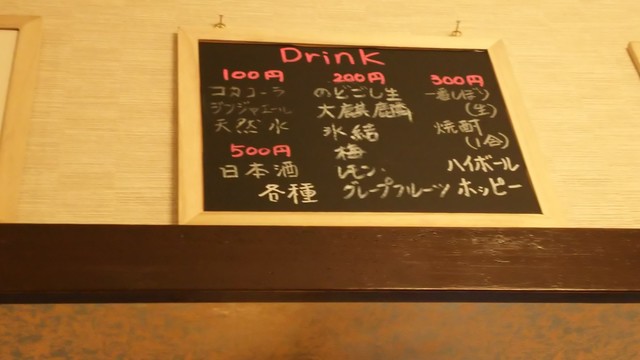 Drink
100円
コカコーラ
ジンジャエール
天然水
500円
日本酒
各種
200円
のどごし生
大麒麟
氷結
梅
レモン
グレープフルーツ
300円
一番しぼり
(生)
焼酎
(1合)
ハイボール
ホッピー